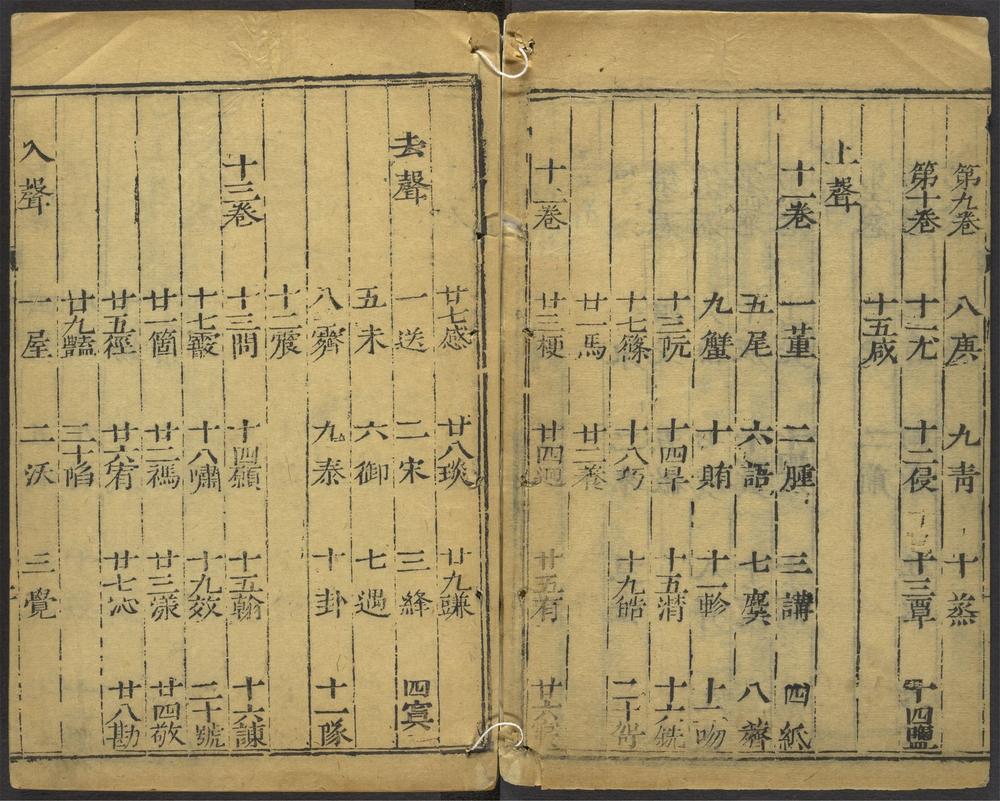 第九卷 八庚 九青 十蒸
第十卷 十一尤 十二侵 十三覃 十四鹽
十五咸
上聲
十一卷 一董 二腫 三講 四紙
五尾 六語 七麌 八薺
九蟹 十賄 十一軫 十二吻
十三阮 十四旱 十五潸 十六銑
十七篠 十八巧 十九皓 二十哿
廿一馬 廿二養
十二卷 廿三梗 廿四迥 廿五有 廿六
廿七感 廿八琰 廿九豏
去聲 一送 二宋 三絳 四寘
五未 六御 七遇
八霽 九泰 十卦 十一隊
十二震
十三卷 十三問 十四願 十五翰 十六諫
十七霰 十八嘯 十九效 二十號
廿一箇 廿二禡 廿三漾 廿四敬
廿五徑 廿六宥 廿七沁 廿八勘
廿九豔 三十陷
入聲 一屋 二沃 三覺